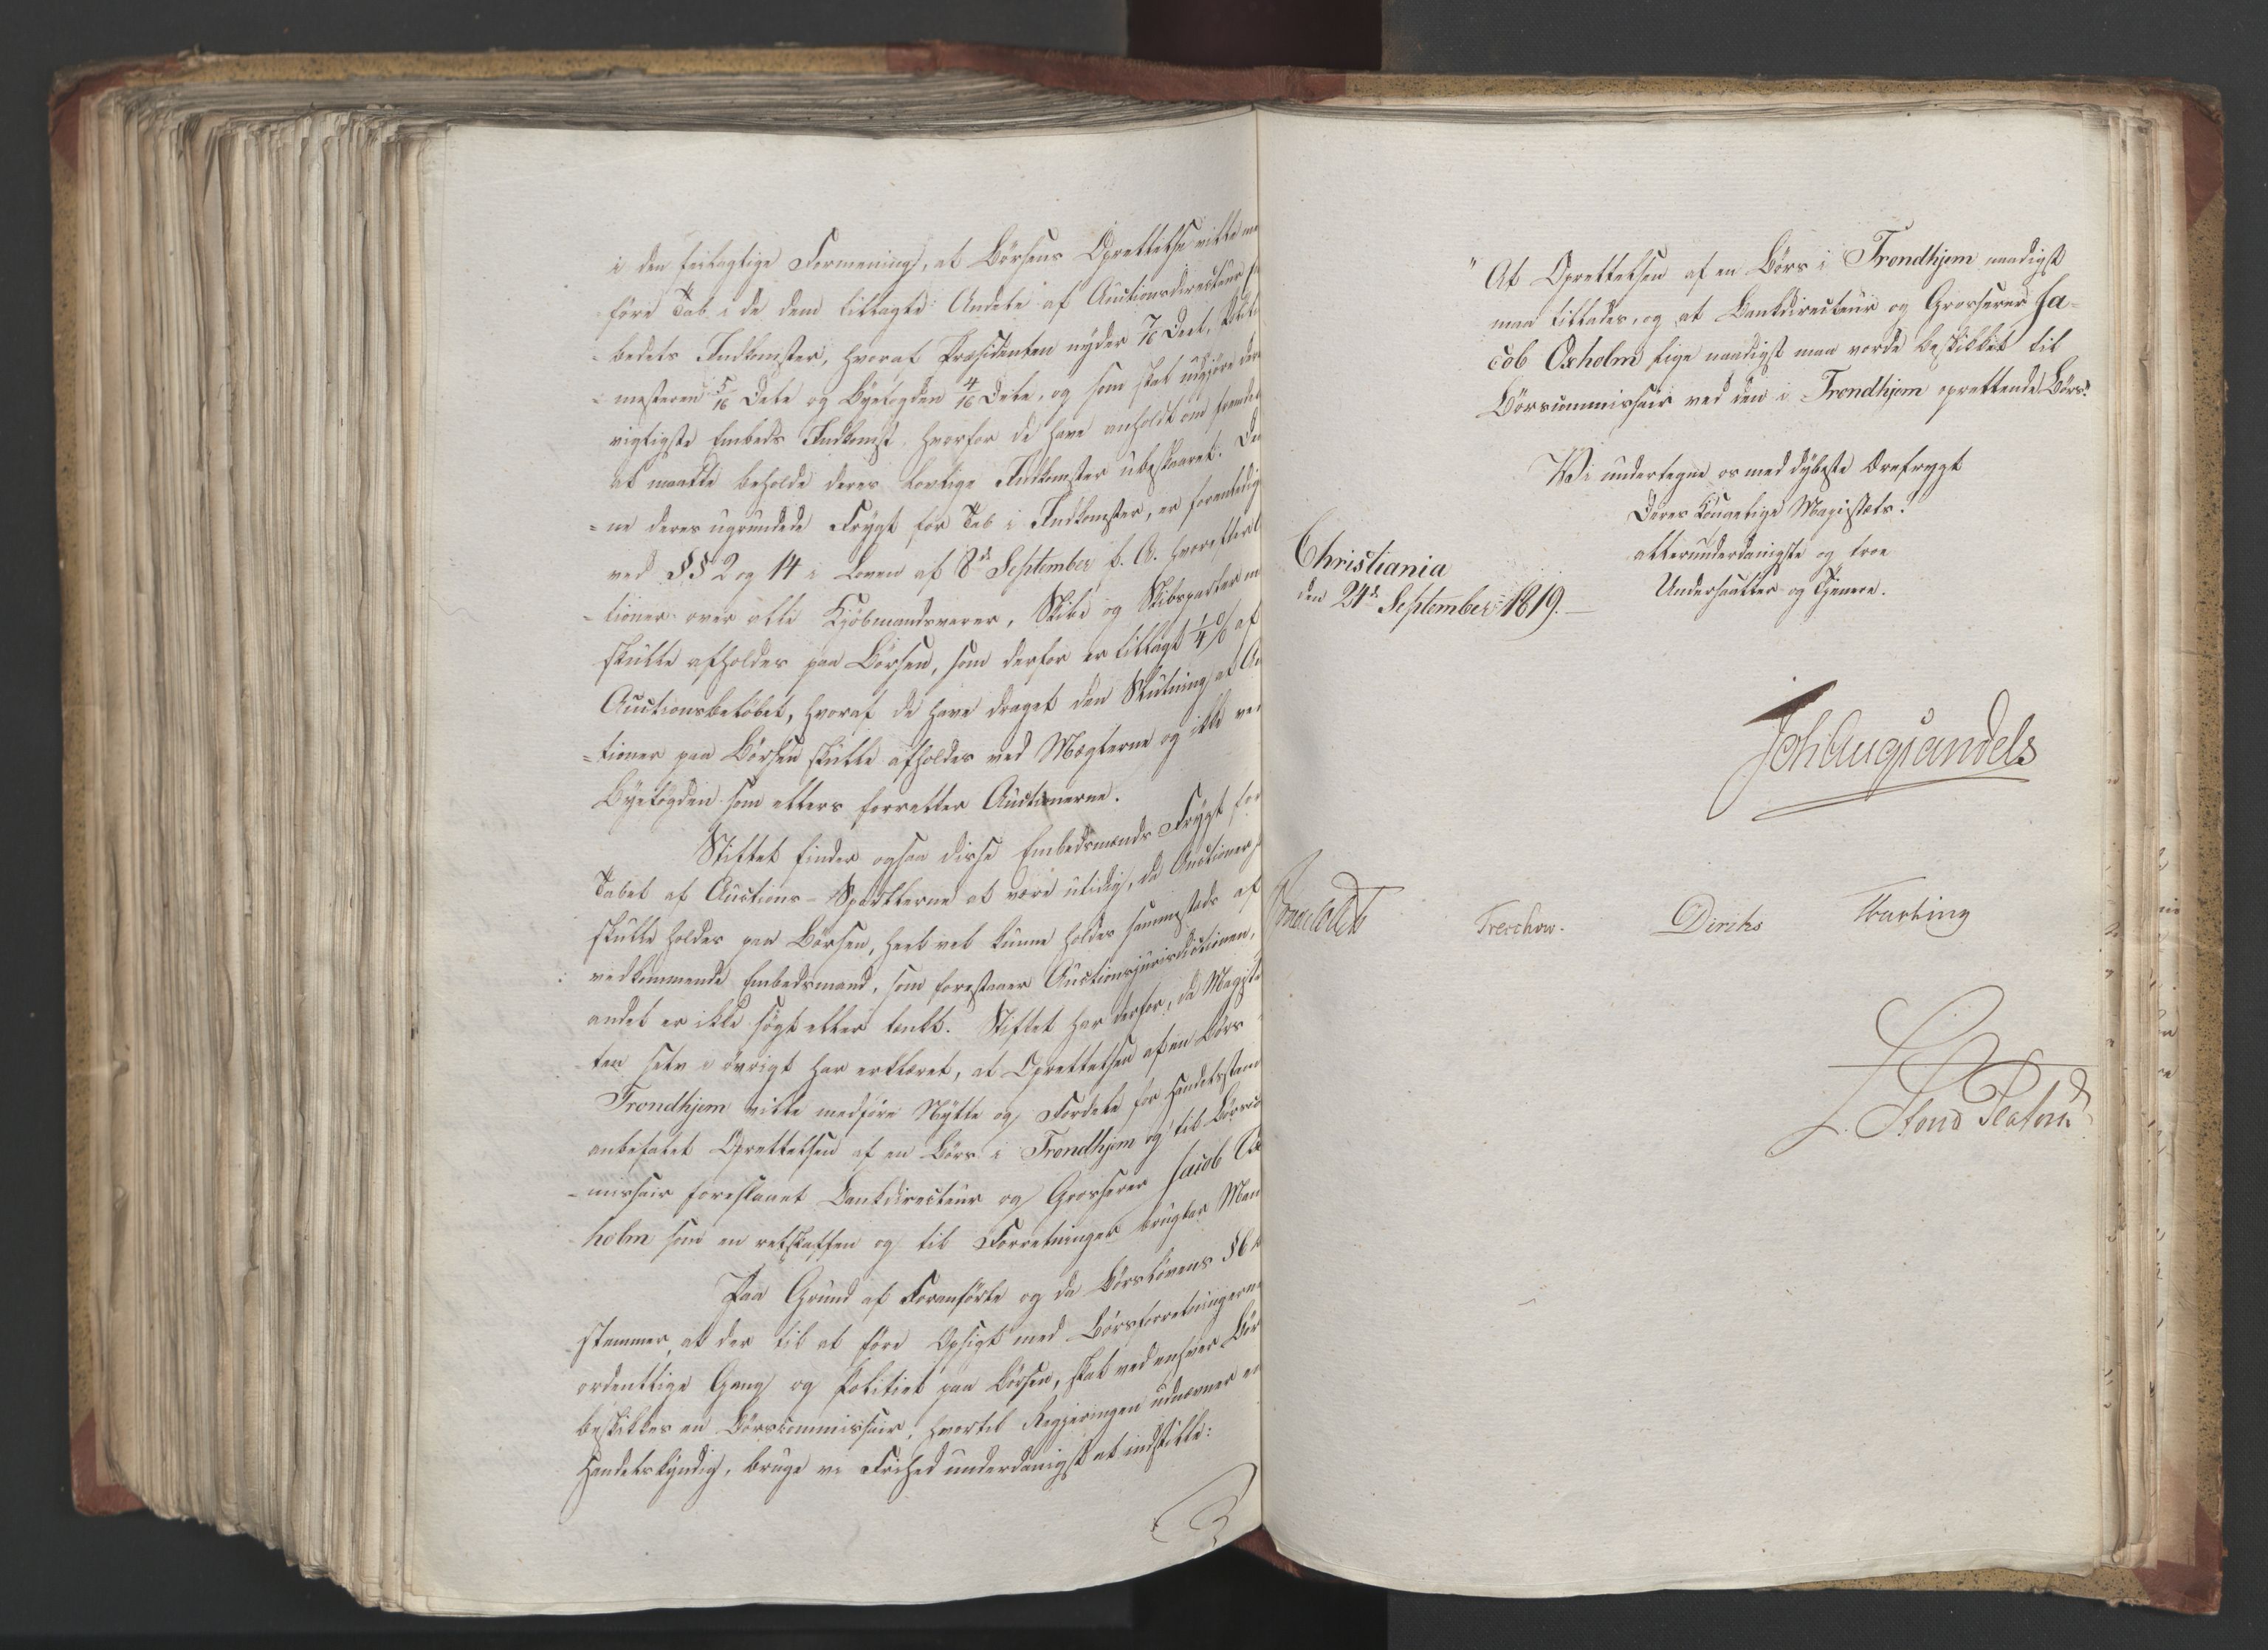 i den feilagtige Formening, at Börsens Oprettelse vilde med
före Tab i de dem tillagte Andele af Auctionsdirecteur Em
-bedets Indkomster, hvoraf Præsidenten nyder 7/16 Deel, Politie
-mesteren 5/16 Dele og Byefogden 4/16 Dele, og som skal udgjöre deres
vigtigste Embeds Indkomst, hvorfor de have anholdt om fremdeles
at maatte beholde deres lovlige Indkomster ubeskaaret. Den
=ne deres ugrundede Frygt for Tab i Indkomster, er foranlediget
ved §§ 2 og 14 i Loven af 8de September f. A. hvorefter Auc
=tioner over alle Kjöbmandsvarer, Skibe og Skibsparter m
skulle afholdes paa Börsen, som derfor er tillagt 1/4 % af
Auctionsbelöbet, hvoraf de have draget den Slutning at Auc
=tioner paa Börsen skulle afholdes ved Mæglerne og ikke ved
Byefogden som ellers forretter Auctionerne.
Stiftet finder ogsaa disse Embedsmænds Frygt for
Tabet af Auctions-Sportlerne at være utidig, da Auctioner som
skulle holdes paa Börsen, heel vel kunne holdes sammesteds af
vedkommende Embedsmand, som forestaaer Auctionsjurisdictionen,
andet er ikke sögt eller tænkt. Stiftet har derfor, da Magistra
-ten selv i övrigt har erklæret, at Oprettelsen af en Börs i
Trondhjem vilde medföre Nytte og Fordele for Handelsstanden
anbefalet Oprettelsen af en Börs i Trondhjem og til Börscom
-missair foreslaaet Bankdirecteur og Grosserer Jacob Ox
holm som en retskaffen og til Forretninger brugbar Mand
Paa Grund af Foranförte og da Börslovens § 6 be
stemmer, at der til at före Opsigt med Börsforretningernes
ordentlige Gang og Politiet paa Börsen, skal ved enhver Börs
beskikkes en Börscommissair, hvortil Regjeringen udnævner en
Handelskyndig, bruge vi Frihed underdanigst at indstille:
"At Oprettelsen af en Börs i Trondhjem naadigst
maa tillades, og at Bankdirecteur og Grosserer Ja-
cob Oxholm lige naadigst maa vorde beskikket til
Börscommissair ved den i Trondhjem oprettende Börs."
Vi undertegne os med dybeste Ærefrygt
Deres Kongelige Majestæts.
allerunderdanigste og troe
Undersaatter og Tjenere.
Christiania
den 24de September 1819.
Joh Aug Sandels
Treschow. Diriks Fasting
L. Stoud Platou